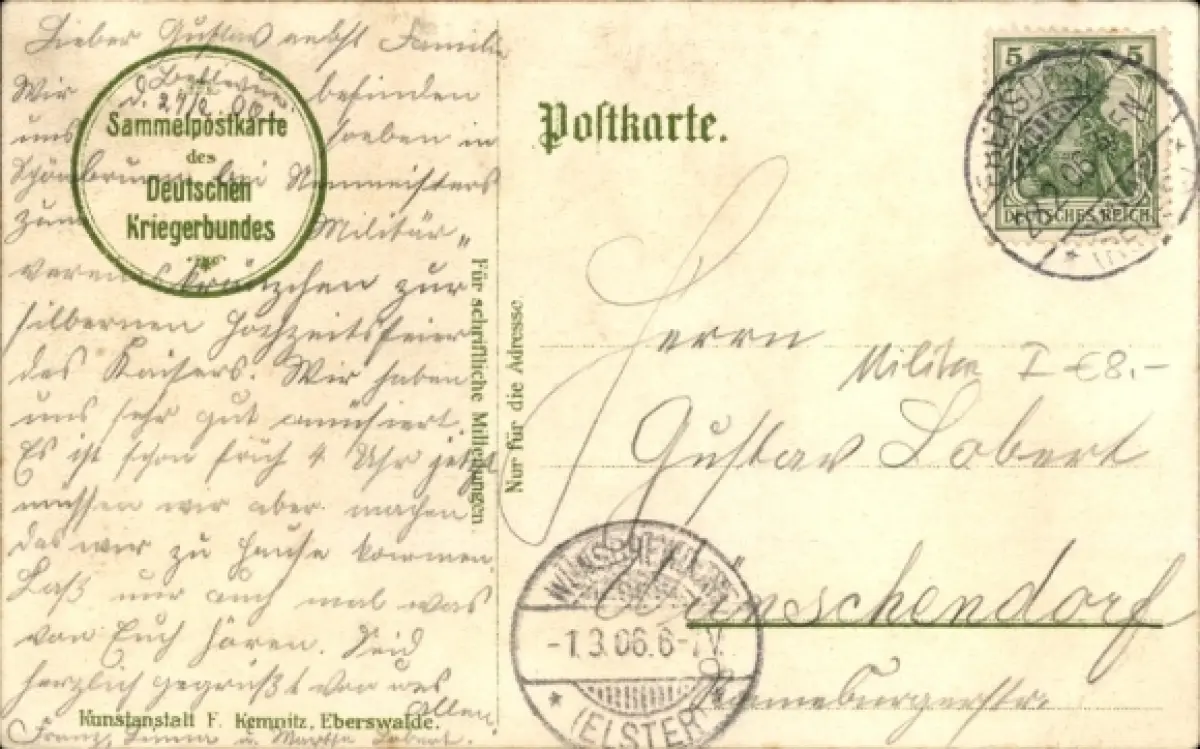 Lieber Gustav nebst Familie
d. 27/2 06
Wir befinden
uns soeben in
Schönbrunn bei
zum Militär-
vereinskränzchen zur
silbernen Hochzeitsfeier
des Kaisers. Wir haben
uns sehr gut amüsiert.
Es ist schon früh 4 Uhr jetzt
müssen wir aber machen
das wir zu Hause kommen.
Laß nur auch mal was
von Euch hören. Seid
herzlich gegrüßt von uns
allen
Franz, u. Martha Lobert.
Sammelpostkarte
des
Deutschen
Kriegerbundes
Kunstanstalt F. Kemnitz, Eberswalde.
Für schriftliche Mitteilungen.
Nur für die Adresse.
Postkarte.
5 5
DEUTSCHES REICH
Herrn
Militär I €8.-
Gustav Lobert
Wünschendorf
WÜNSCHENDORF
-1.3.06.6-7V.
* (ELSTER) *